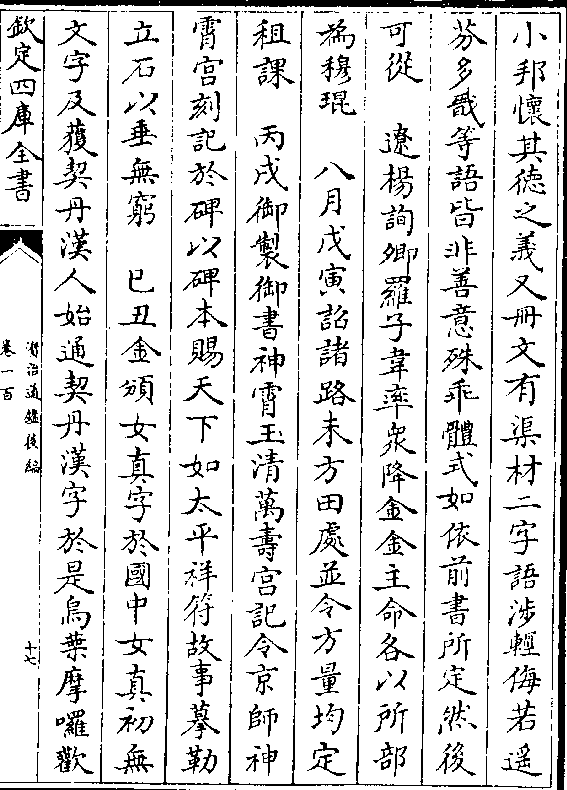 小邦懷其德之義又冊文有渠材二字語涉輕侮若遥
芬多戩等語皆非善意殊乖體式如依前書所定然後
可從　遼楊詢卿羅子韋率衆降金金主命各以所部
為穆琨　八月戊寅詔諸路未方田處並令方量均定
租課　丙戌御製御書神霄玉清萬壽宫記令京師神
霄宫刻記於碑以碑本賜天下如太平祥符故事摹勒
立石以垂無窮　已丑金頒女真字於國中女真初無
文字及獲契丹漢人始通契丹漢字於是烏葉摩囉歡
欽定四庫全書
資治通鑑後編
卷一百
十七